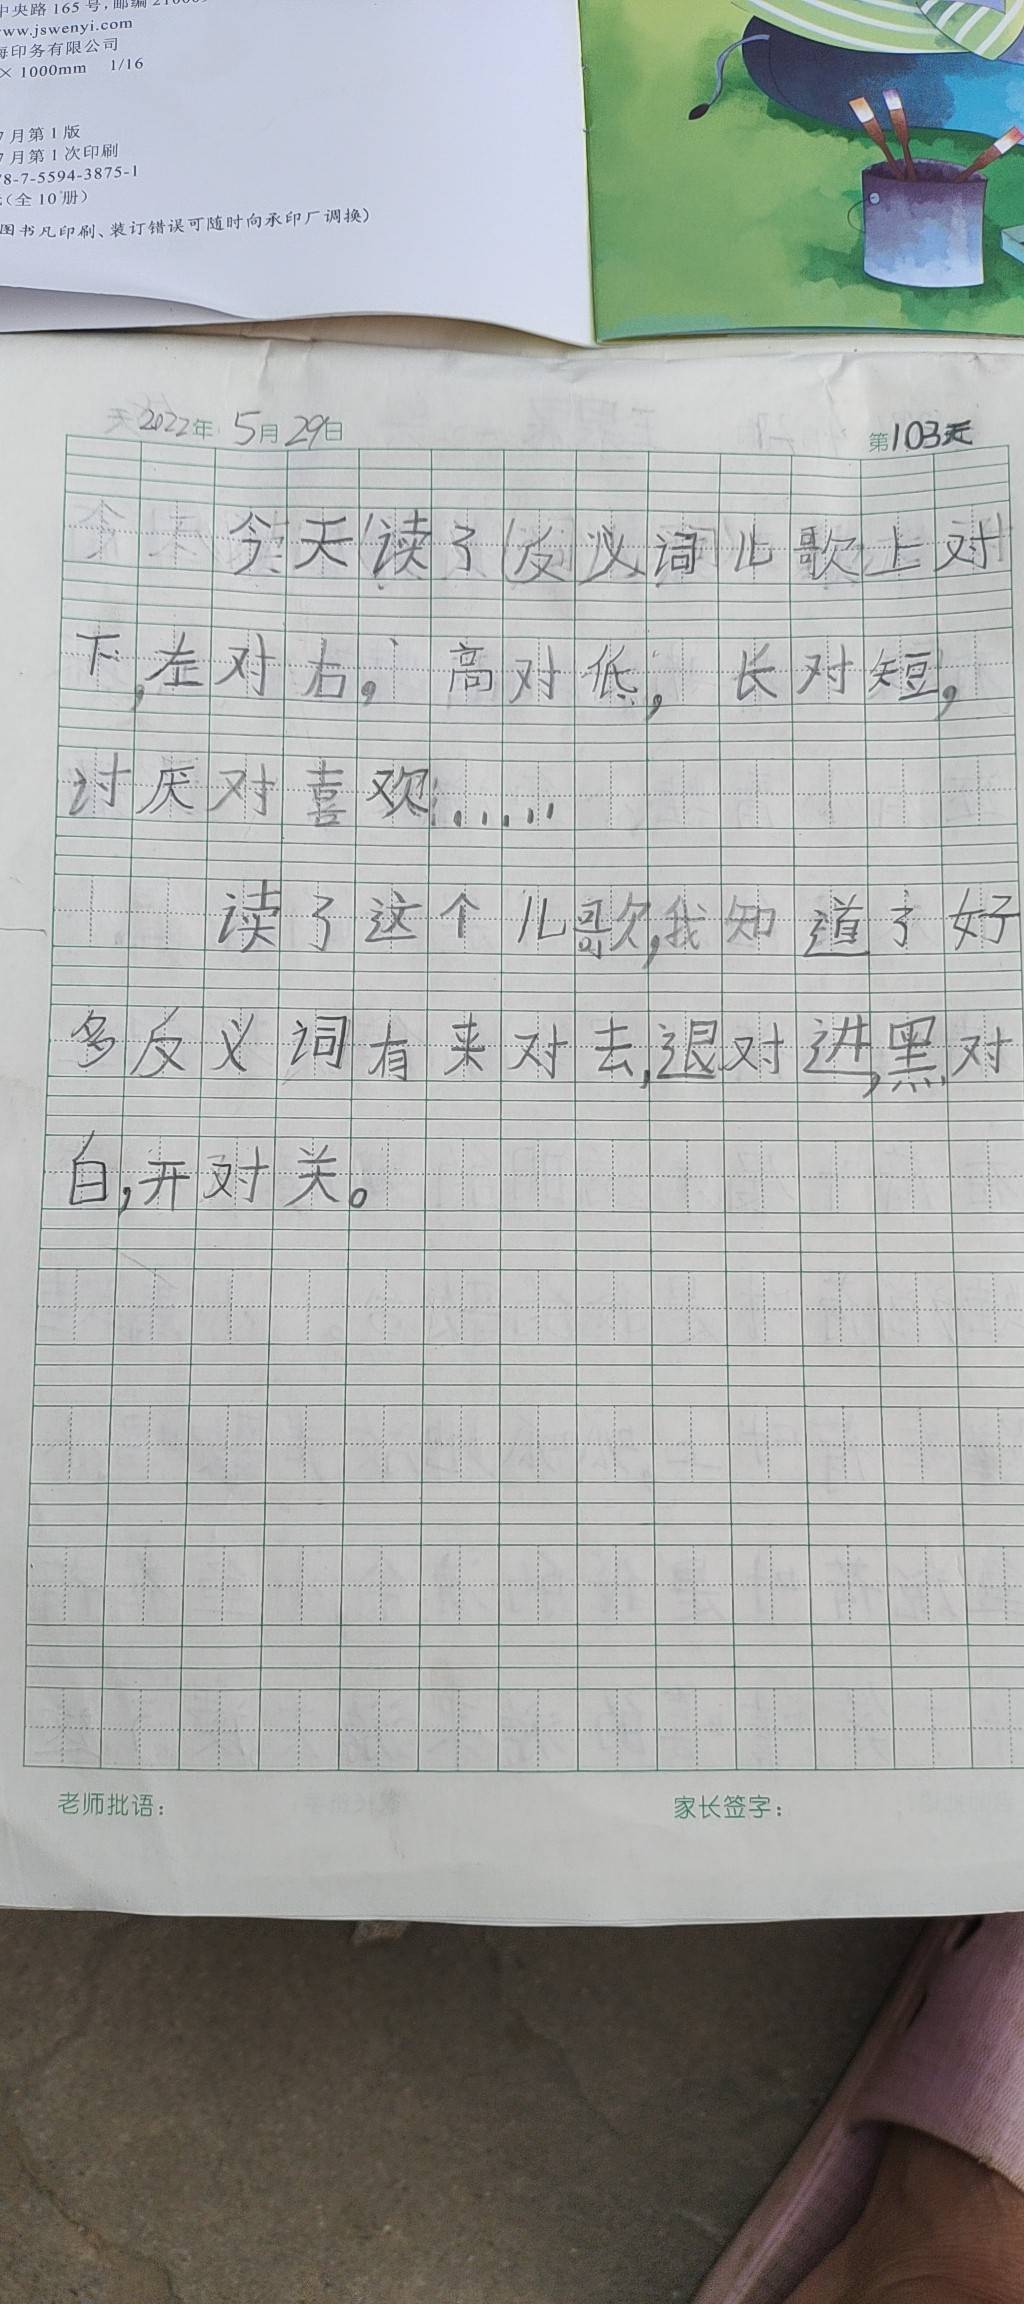 中央路 165 号，邮编
www.jswenyi.com
海印务有限公司
× 1000mm 1/16
7 月第 1 版
7 月第 1 次印刷
78-7-5594-3875-1
（全 10 册）
图书凡印刷、装订错误可随时向承印厂调换）
2022年 5月29日
第103天
今天读了反义词儿歌上对
下,左对右。高对低,长对短,
讨厌对喜欢......
读了这个儿歌,我知道了好
多反义词有来对去,退对进,黑对
白,开对关。
老师批语：
家长签字：